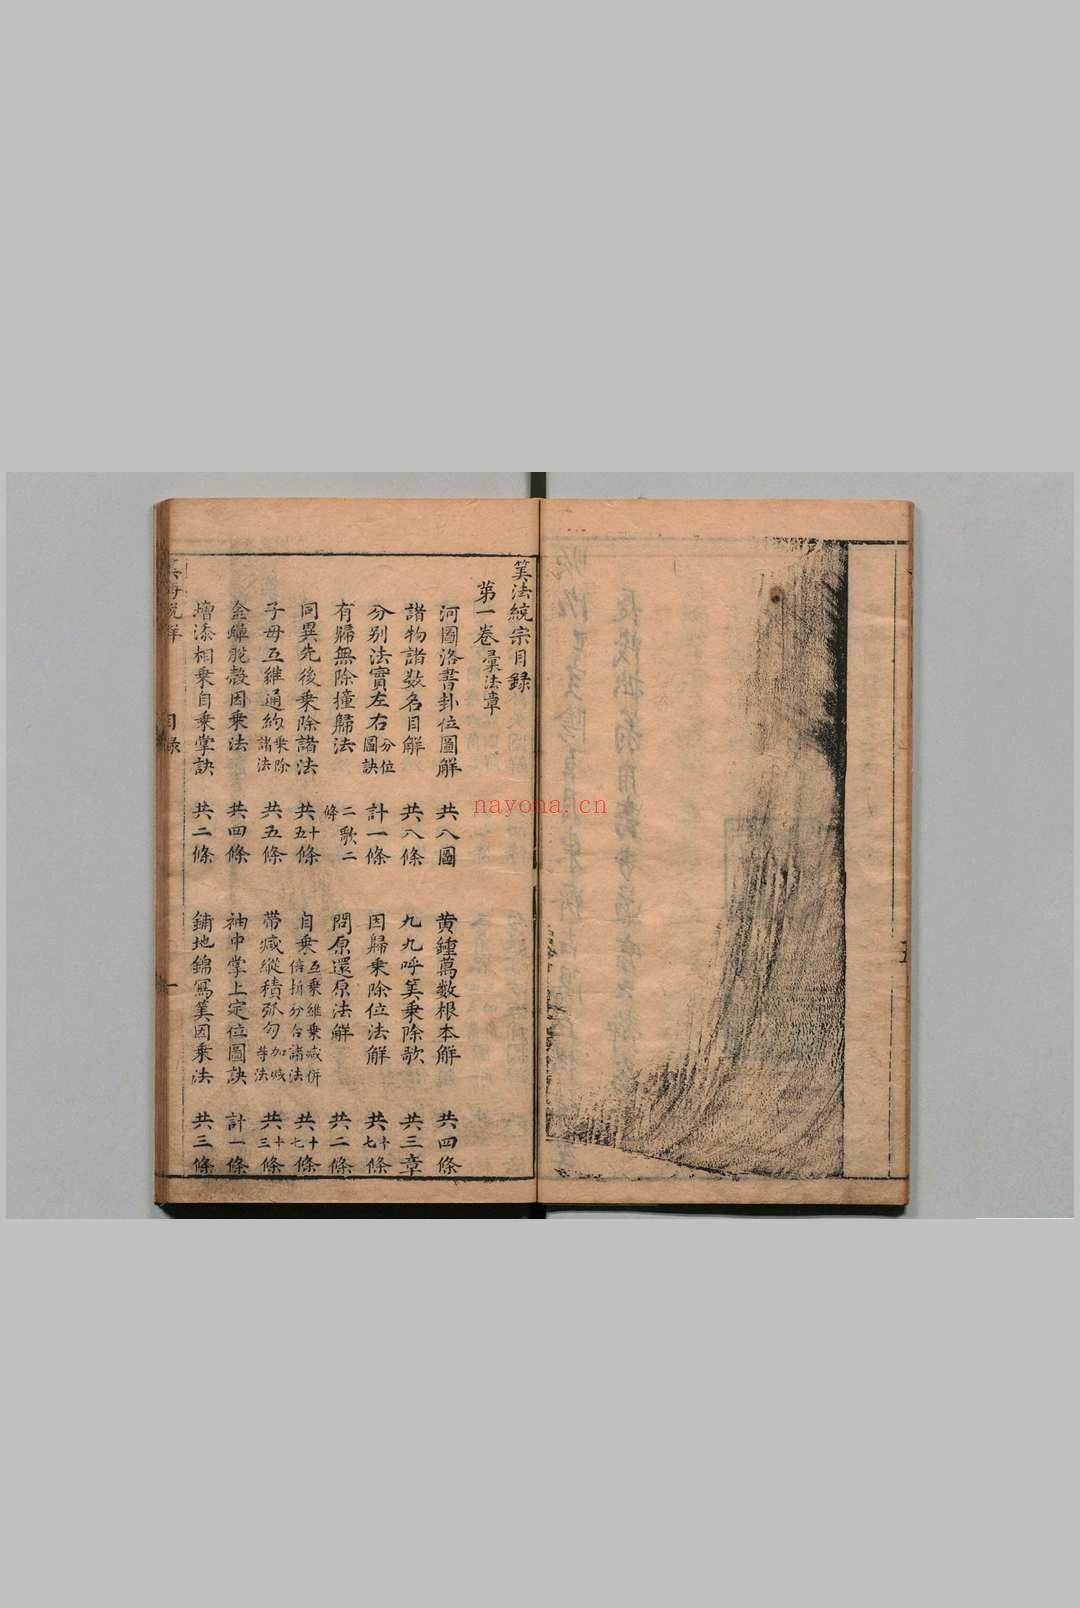 筭法統宗目録
第一卷彚法章
河圖洛書卦位圖解 共八圖 黄鍾萬數根本解 共四條
諸物諸数名目解 共八條 九九呼筭乗除歌 共三章
分别法實左右分位圖訣 計一條 因歸乗除位法解 共十七條
有歸無除撞歸法 二歌二條 問原還原法解 共二條
同異先後乗除諸法 共十五條 自乗互乗維乗減併倍折分合諸法 共十七條
子母互維通約乗除諸法 共五條 帶減縱積弧勾加减等法 共十三條
金蟬脱殼因乗法 共四條 袖中掌上定位圖訣 計一條
增添相乗自乗掌訣 共二條 鋪地錦寫筭因乗法 共三條
目録
一
nayona.cn